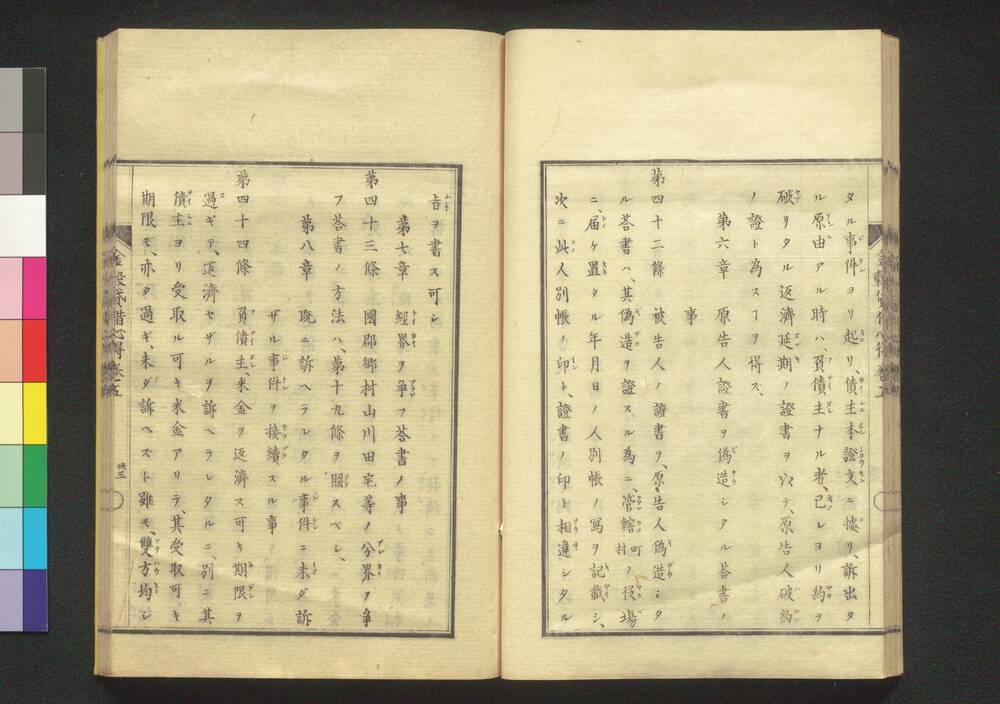 タル事件ヨリ起リ、債主本證文ニ據リ、訴出タ
ル原由アル時ハ、負債主ナル者、已レヨリ約ヲ
破リタル返濟延期ノ證書ヲ以テ、原告人破約
ノ證ト為スヿヲ得ズ
第六章 原告人證書ヲ偽造シタル荅書ノ
事
第四十二條 被告人ノ證書ヲ、原告人偽造シタ
ル荅書ハ、其偽造ヲ證スル為ニ、管轄町村ノ役場
ニ、届ケ置タル年月日ノ人別帳ノ寫ヲ記載シ、
次ニ此人別帳ノ印ト、證書ノ印ト相違シタル
旨ヲ書ス可シ
第七章 經界ヲ爭フ荅書ノ事
第四十三條 國郡鄉村山川田宅等ノ分界ヲ爭
フ荅書ノ方法ハ、第十九條ヲ照スベシ、
第八章 既ニ訴ヘラレタル事件ニ未ダ訴
ザル事件ヲ接續スル事
第四十四條 負債主、米金ヲ返濟ス可キ期限ヲ
過ギテ、返濟セザルヲ訴ヘラレタルニ、別ニ其
債主ヨリ受取ル可キ米金アリテ、其受取可キ
期限モ、亦タ過ギ、未ダ訴ヘズト雖モ、雙方均シ
金穀貸借心得卷五
卅三